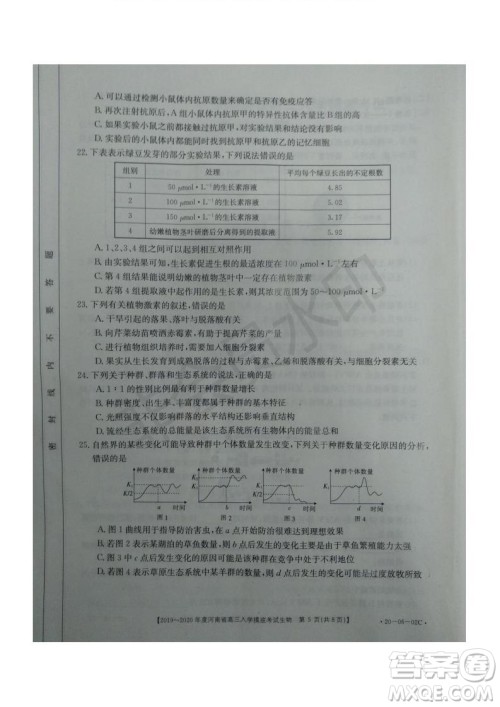 A. 可以通过检测小鼠体内抗原数量来确定是否有免疫应答
B. 再次注射抗原后,A 组小鼠体内抗原甲的特异性抗体含量比 B 组的高
C. 如果实验小鼠之前都接触过抗原甲,则实验结果会受到影响
D. 实验结束后,两组小鼠体内都存在抗甲和抗乙的记忆细胞
22. 下表表示绿豆发芽的部分实验结果,下列说法错误的是
组别 处理 平均每个绿豆长出的不定根数
1 50 μmol·L⁻¹的生长素溶液 4.85
2 100 μmol·L⁻¹的生长素溶液 5.02
3 150 μmol·L⁻¹的生长素溶液 3.17
4 幼嫩植物茎叶研磨后分离得到的提取液 5.92
A. 1、2、3、4 组之间可以起到相互对照作用
B. 根据实验结果说明,生长素促进生根的最适浓度在 100 μmol·L⁻¹左右
C. 第 4 组结果能说明幼嫩的植物茎叶中一定存在生长素
D. 第 4 组提取液的作用不一定是生长素的浓度范围为 50~100 μmol·L⁻¹
23. 下列有关植物激素的叙述,错误的是
A. 干旱引起的落叶、落果与脱落酸有关
B. 向芹菜幼苗喷洒赤霉素,有利于提高产量
C. 植物组织培养中,需要用到细胞分裂素
D. 植物果实发育到成熟脱落的过程与赤霉素、乙烯和脱落酸有关、与细胞分裂素无关
24. 下列关于种群、群落和生态系统的叙述,正确的是
A. 1∶1 的性别比例最有利于种群数量的增长
B. 丰富度都属于种群和群落的特征
C. 光照强度不仅影响群落的垂直结构还影响水平结构
D. 流经生态系统的总能量就是该生态系统所有生物体内的能量
25. 自然界的某些变化可能导致种群中个体数量发生改变,下列关于种群数量变化原因的分析,
错误的是
种群个体数量 种群个体数量 种群个体数量 种群个体数量
K K/2 a 时间 K K/2 b 时间 K K/2 c 时间 K K/2 d 时间
图1 图2 图3 图4
A. 图 1 曲线用于指导防治害虫,在 a 点开始防治不能达到理想效果
B. 图 2 表示某湖泊的草鱼数量,则 b 点后发生的变化主要是由于草鱼繁殖能力增强
C. 图 3 中 c 点后发生的变化可能是由于该种群在竞争中处于不利地位
D. 若图 4 表示草原生态系统中某羊群的数量,则 d 点后发生的变化可能是过度放牧
密封线内不要答题
水印
【2019~2020 年度河南省高三入学摸底考试生物 第 5 页(共 8 页)】
·20-06-02C·